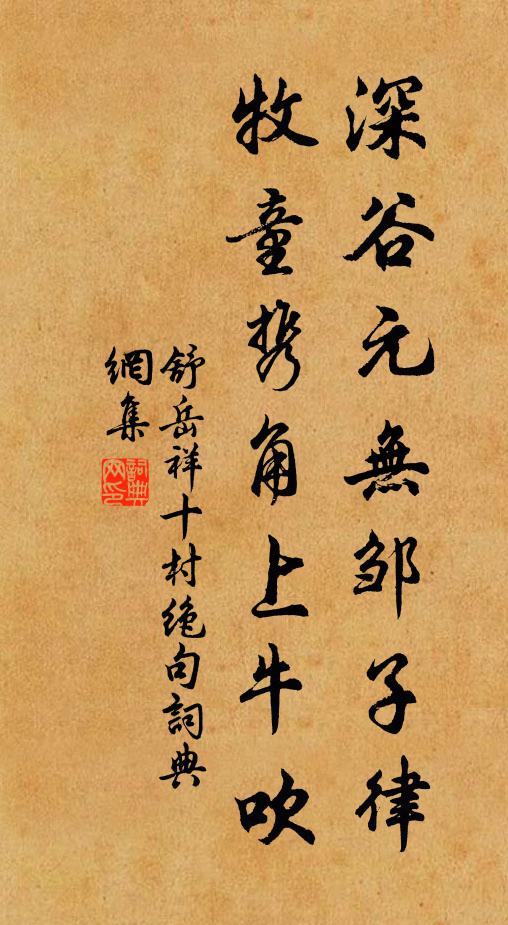 深谷元無邹子律
牧童携角上牛吹
舒岳祥十村绝句詞典
網集
詞典网印